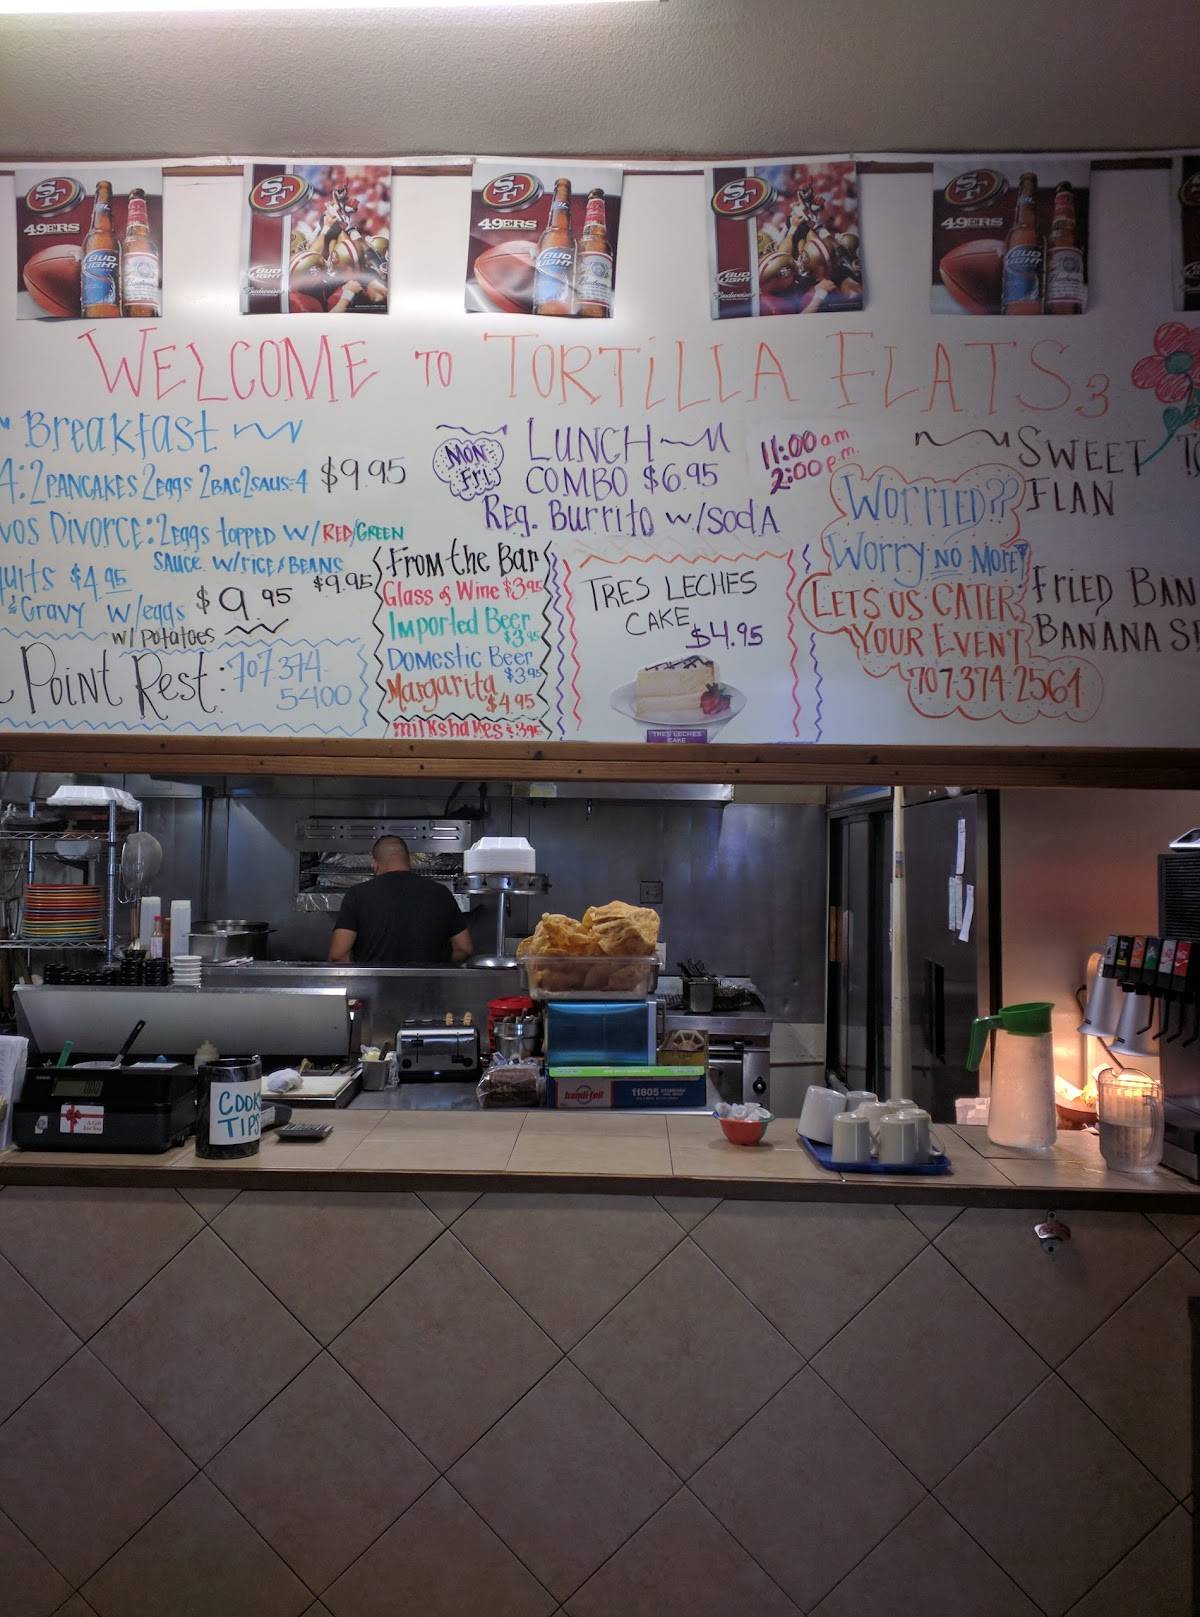 SF
49ERS
BUD LIGHT
Budweiser
SF
BUD LIGHT
Budweiser
SF
49ERS
BUD LIGHT
Budweiser
SF
BUD LIGHT
Budweiser
SF
49ERS
BUD LIGHT
Budweiser
WELCOME TO TORTILLA FLATS 3
Breakfast
4:2 PANCAKES 2 eggs 2 BAC 2 SAUS=4 $9.95
VOS DIVORCE: 2 eggs topped w/ RED/GREEN
SAUCE w/rice & BEANS
$9.95
uits $4.95
& Gravy w/eggs $9.95
w/ Potatoes
Point Rest: 707.374.
5400
From the Bar
Glass of Wine $3.95
Imported Beer
$3.95
Domestic Beer
$3.95
Margarita
$4.95
milkshakes $3.95
LUNCH
MON-
FRI
COMBO $6.95
11:00 a.m.
2:00 p.m.
Reg. Burrito w/SODA
TRES LECHES
CAKE
$4.95
TRES LECHES
CAKE
WORRIED??
Worry NO MORE!
LETS US CATER
YOUR EVENT
707.374.2561
SWEET TO
FLAN
FRIED BAN
BANANA SP
COOK
TIPS
handi-foil
11805